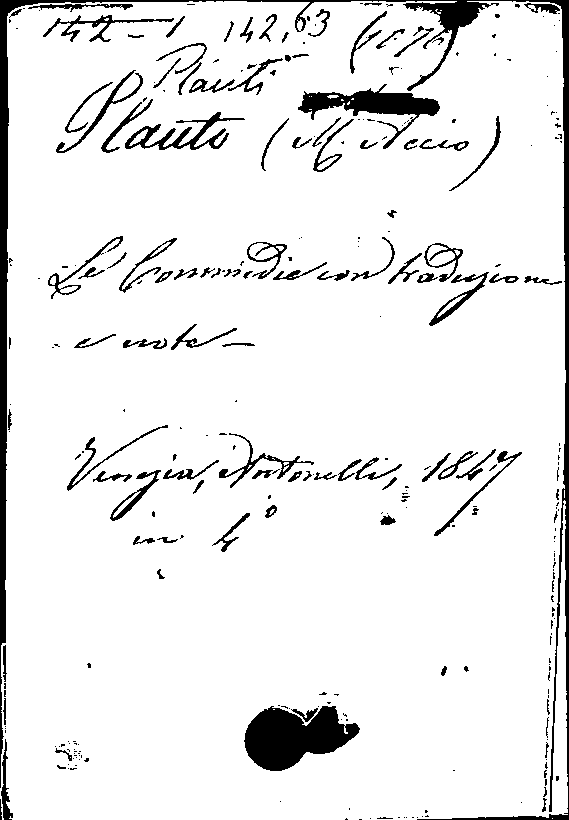 142-1 142,63 (1076)
Plauti
Plauto (M. Accio)
Le Commedie con traduzione
e note -
Venezia, Antonelli, 1847
in 4°